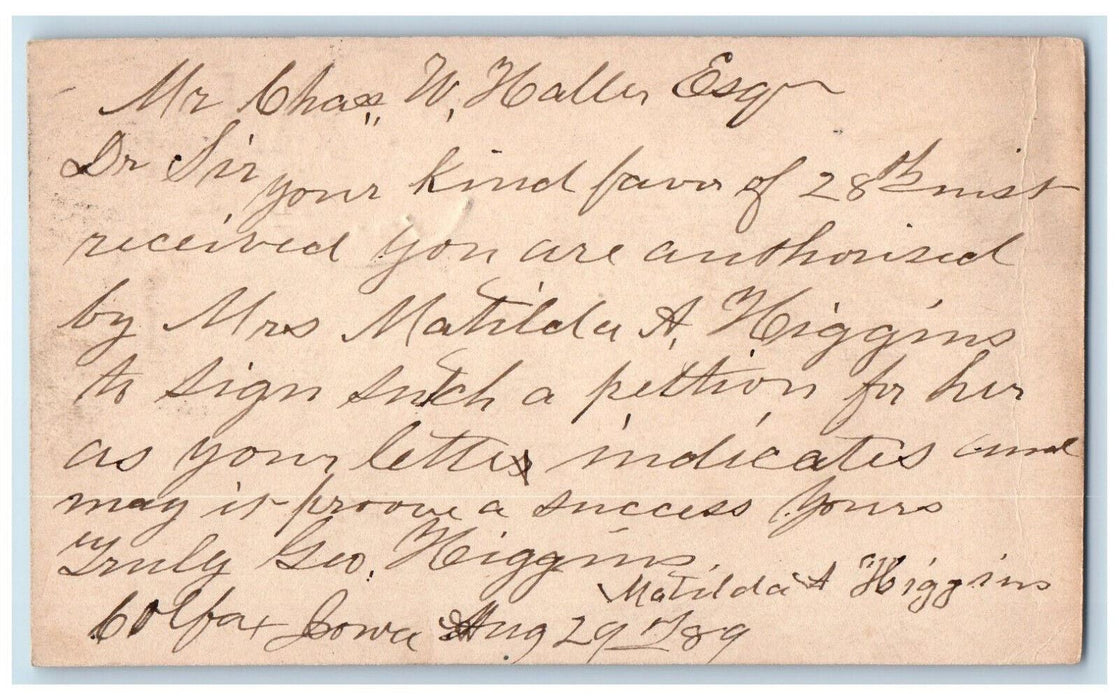 Mr Chas, W, Haller Esqr
Dr Sir your kind favor of 28th inst
received you are authorised
by Mrs Matilda A, Higgins
to sign such a petition for her
as your letter indicates and
may it proove a success yours
Truly Geo, Higgins
Matilda A Higgins
Colfax Iowa Aug 29th/89